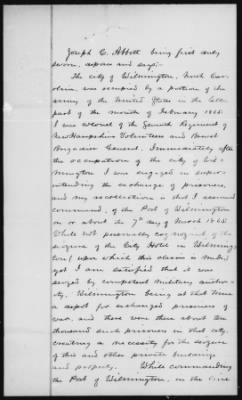 Joseph C. Abbott being first duly
sworn, deposes and says:
The city of Wilmington, North Caro-
lina, was occupied by a portion of the
army of the United States in the latter
part of the month of February 1865.
I was colonel of the Seventh Regiment of
New Hampshire Volunteers and Brevet
Brigadier General. Immediately after
the occupation of the city of Wil-
mington I was engaged in superin-
tending the exchange of prisoners,
and my recollection is that I assumed
command, of the Post of Wilmington
on or about the 7th day of March 1865.
While not personally cognizant of the
seizure of the City Hotel in Wilming-
ton, upon which this claim is
yet I am satisfied that it was
seized by competent military author-
ity. Wilmington being at that time
a depot for exchanged prisoners of
war, and there were then about ten
thousand such prisoners in that city,
creating a necessity for the seizure
of this and other private buildings
and property. While commanding
the Post of Wilmington, in the